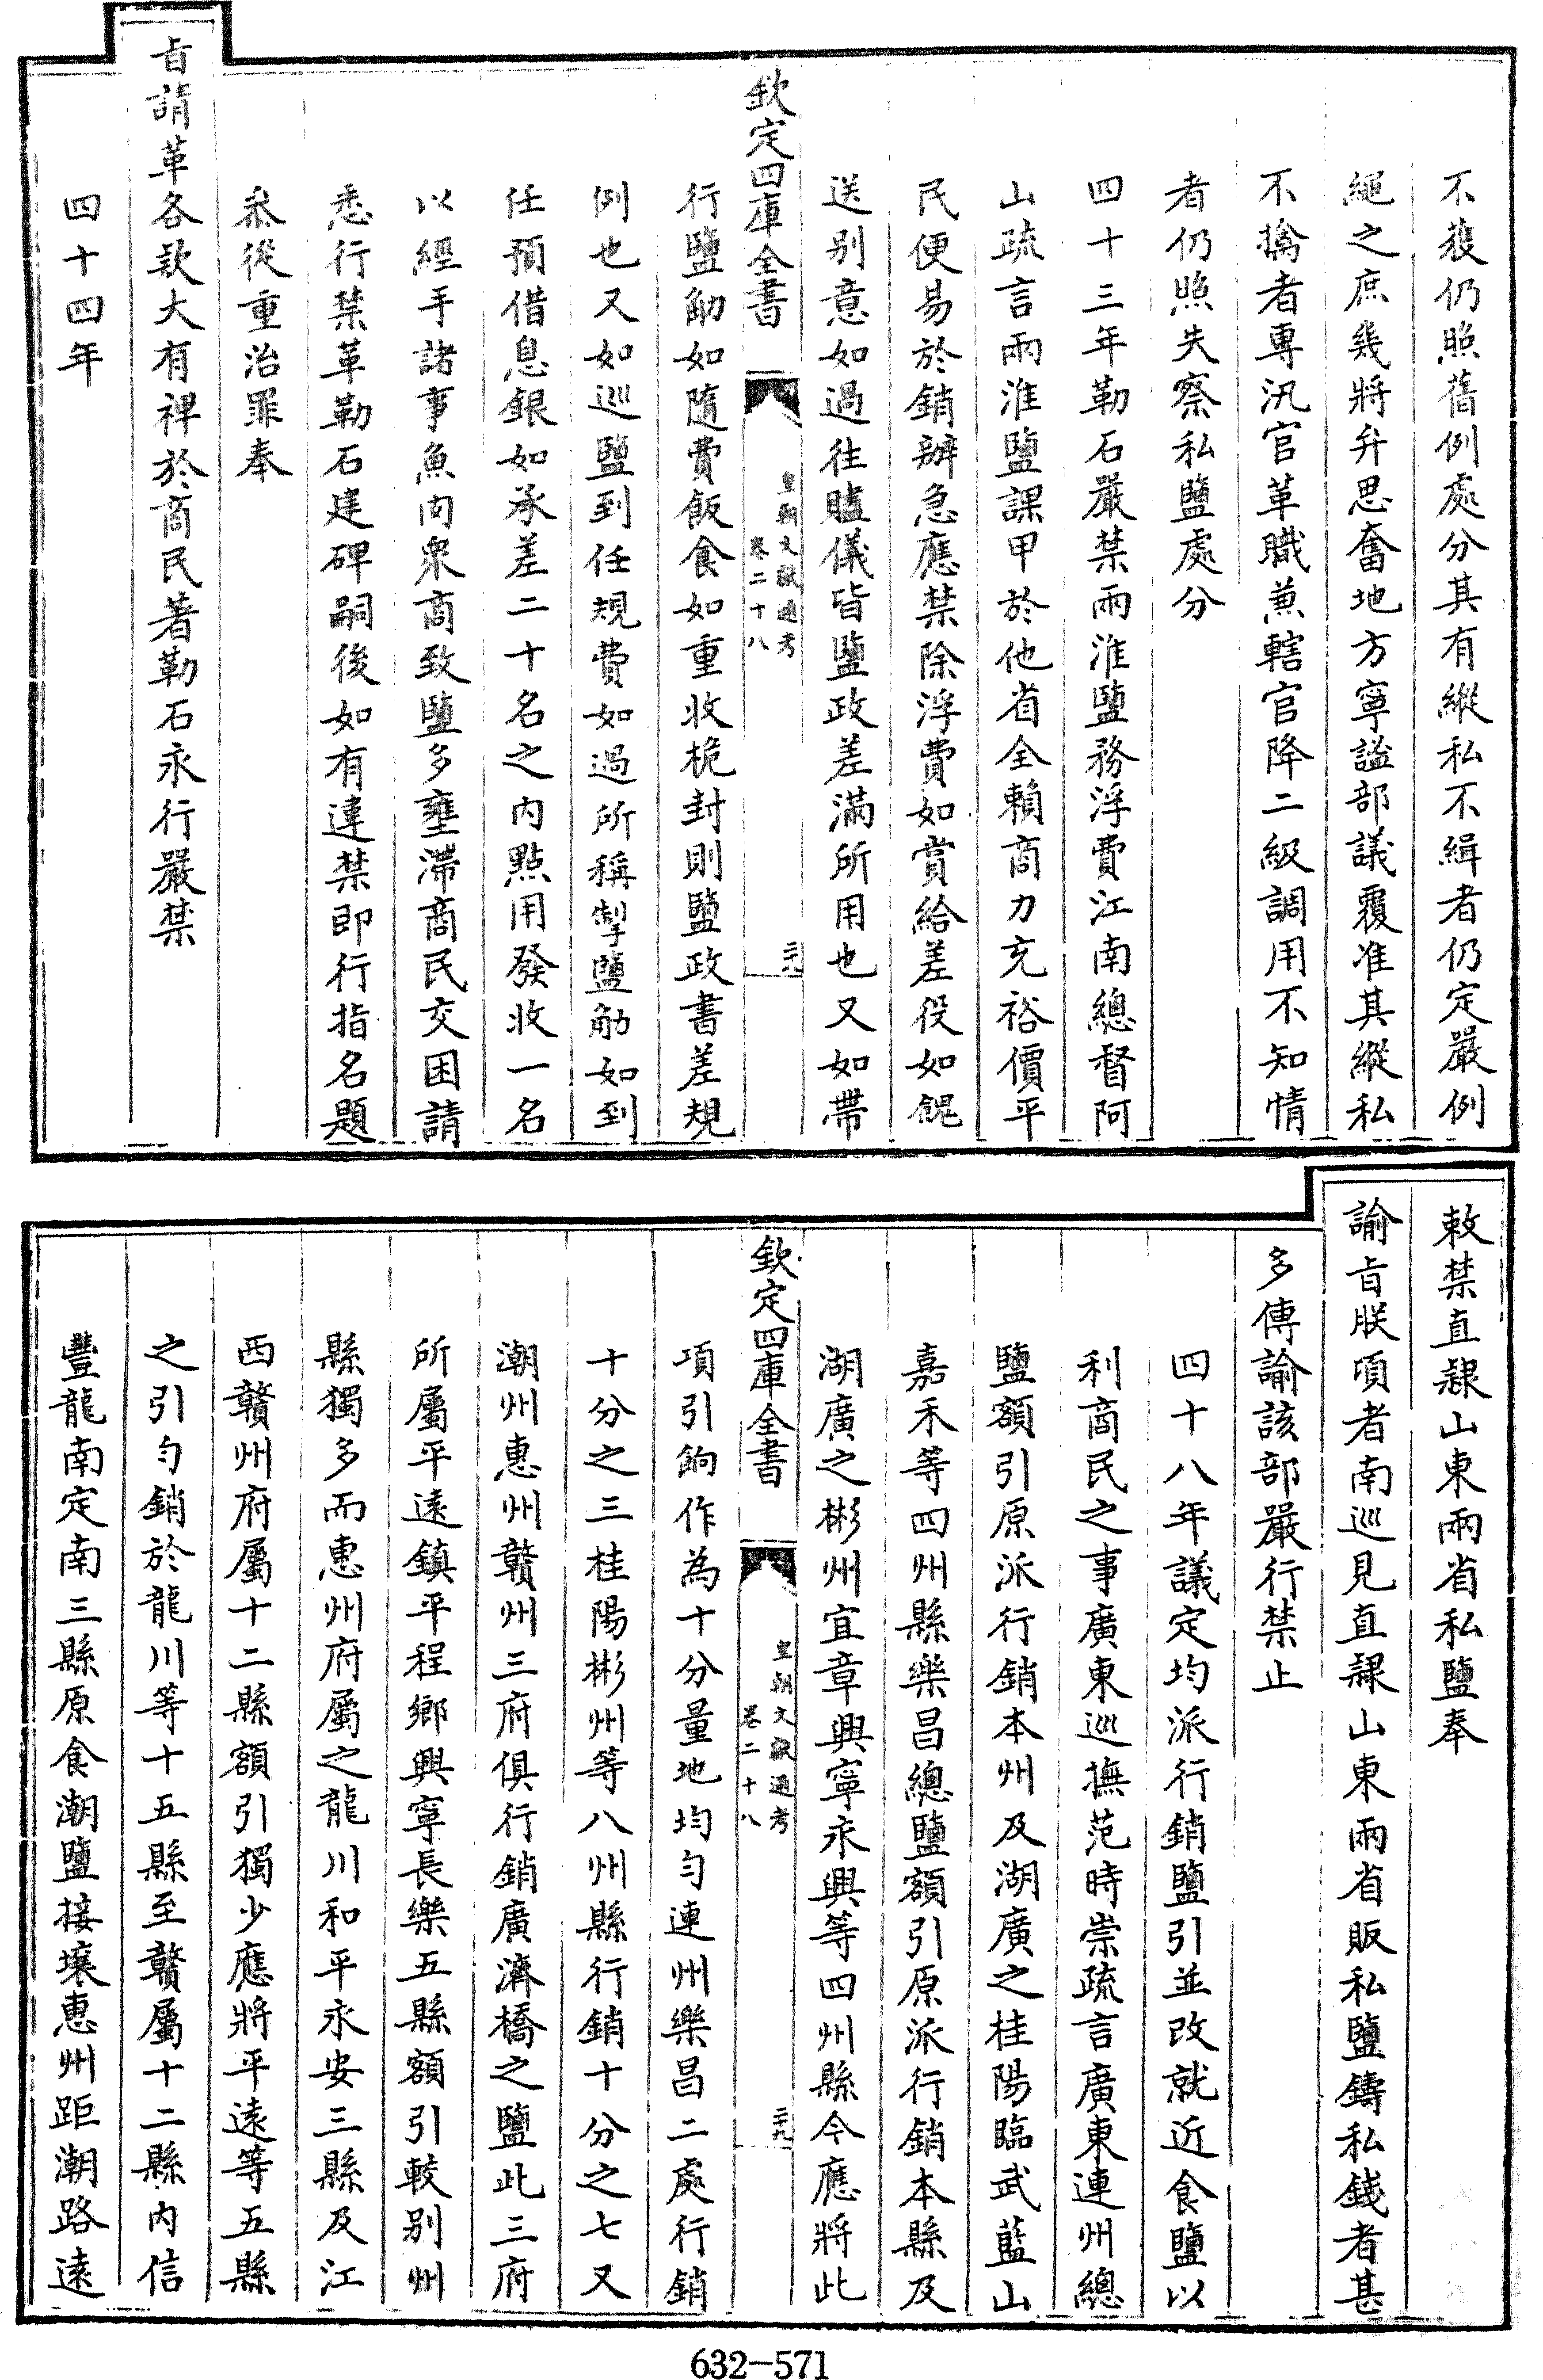 不獲仍照舊例處分其有縱私不緝者仍定嚴例
繩之庶幾將弁思奮地方寧謐部議覆准其縱私
不擒者專汛官革職兼轄官降二級調用不知情
者仍照失察私鹽處分
四十三年勒石嚴禁兩淮鹽務浮費江南總督阿
山疏言兩淮鹽課甲於他省全賴商力充裕價平
民便易於銷辦急應禁除浮費如賞給差役如餽
送别意如過往贐儀皆鹽政差滿所用也又如帶
欽定四庫全書
皇朝文獻通考
卷二十八
二十九
行鹽觔如隨費飯食如重收桅封則鹽政書差規
例也又如巡鹽到任規費如過所稱掣鹽觔如到
任預借息銀如承差二十名之內點用發收一名
以經手諸事魚肉眾商致鹽多壅滯商民交困請
悉行禁革勒石建碑嗣後如有違禁即行指名題
叅從重治罪奉
㫖請革各款大有裨於商民著勒石永行嚴禁
四十四年
敕禁直隸山東兩省私鹽奉
諭㫖朕項者南巡見直隸山東兩省販私鹽鑄私錢者甚
多傳諭該部嚴行禁止
四十八年議定均派行銷鹽引並改就近食鹽以
利商民之事廣東巡撫范時崇疏言廣東連州總
鹽額引原派行銷本州及湖廣之桂陽臨武藍山
嘉禾等四州縣樂昌總鹽額引原派行銷本縣及
湖廣之彬州宜章興寧永興等四州縣今應將此
欽定四庫全書
皇朝文獻通考
卷二十八
二十九
項引餉作為十分量地均勻連州樂昌二處行銷
十分之三桂陽彬州等八州縣行銷十分之七又
潮州惠州贛州三府俱行銷廣濟橋之鹽此三府
所屬平遠鎮平程鄉興寧長樂五縣額引較别州
縣獨多而惠州府屬之龍川和平永安三縣及江
西贛州府屬十二縣額引獨少應將平遠等五縣
之引勻銷於龍川等十五縣至贛屬十二縣内信
豐龍南定南三縣原食潮鹽接壤惠州距潮路遠
632-571